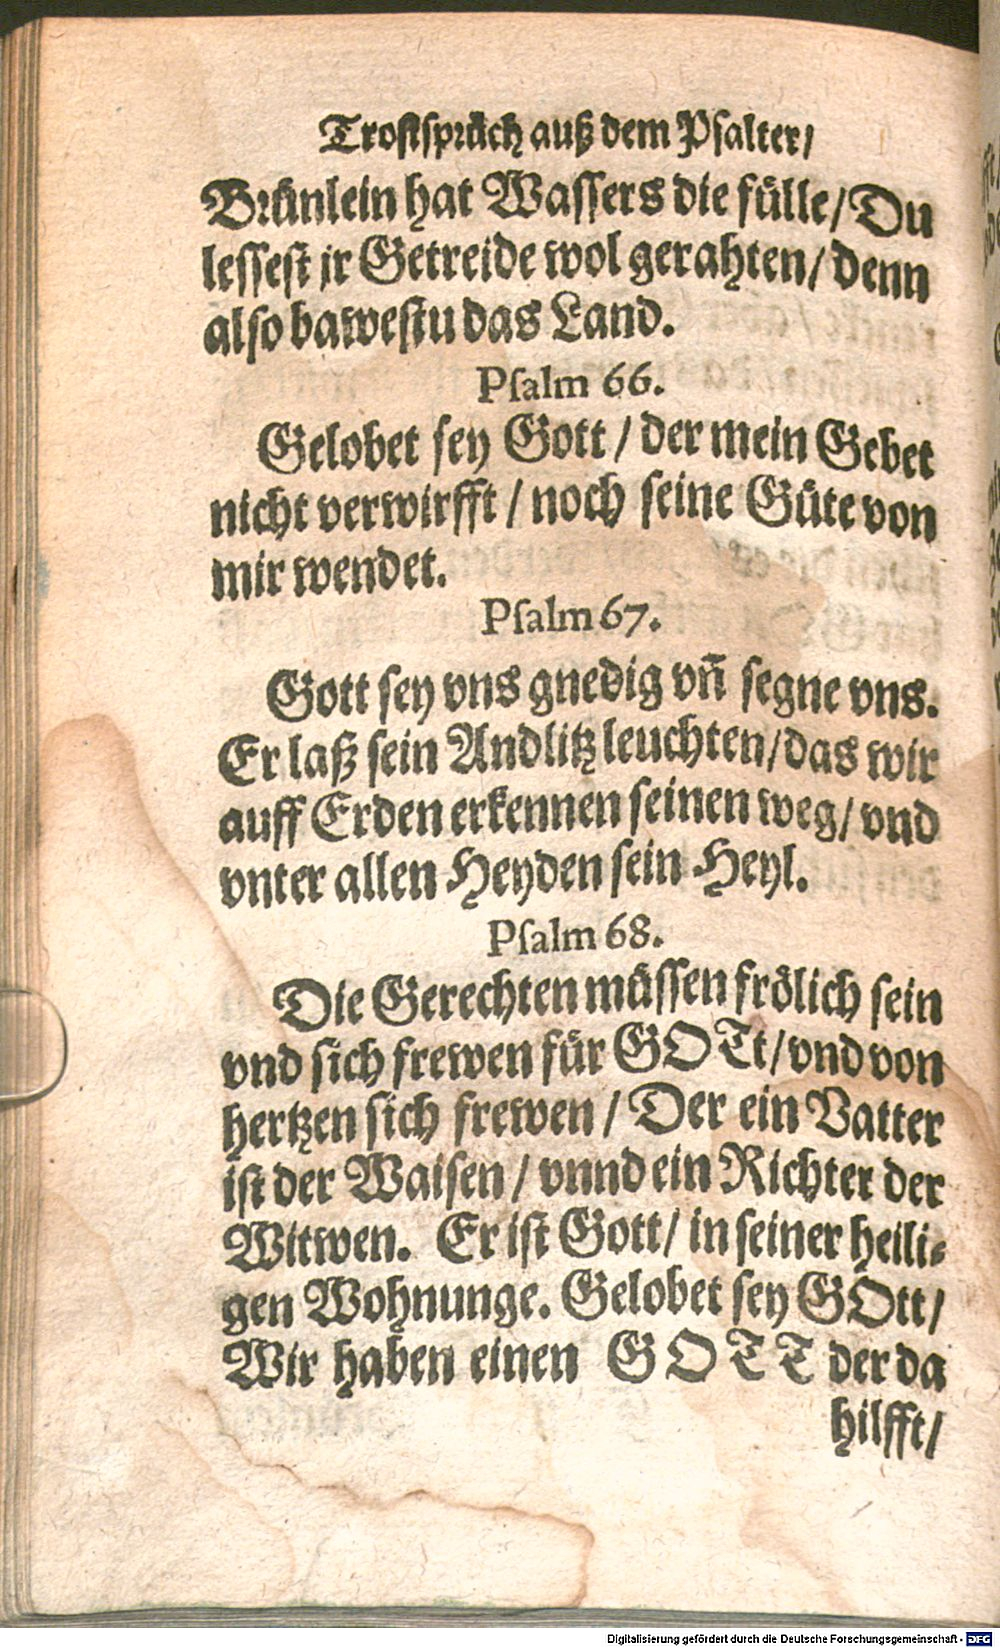 Trostsprüch auß dem Psalter/
Brünlein hat Wassers die fülle/ Du
lessest jr Getreide wol gerahten/ denn
also bawestu das Land.
Psalm 66.
Gelobet sey Gott / der mein Gebet
nicht verwirfft / noch seine Güte von
mir wendet.
Psalm 67.
Gott sey vns gnedig vñ segne vns.
Er laß sein Andlitz leuchten/das wir
auff Erden erkennen seinen weg/ vnd
vnter allen Heyden sein Heyl.
Psalm 68.
Die Gerechten müssen frölich sein
vnd sich frewen für GOTt/vnd von
hertzen sich frewen / Der ein Vatter
ist der Waisen / vnnd ein Richter der
Witwen. Er ist Gott/ in seiner heili-
gen Wohnunge. Gelobet sey GOtt/
Wir haben einen GOTT der da
hilfft/
Digitalisierung gefördert durch die Deutsche Forschungsgemeinschaft - DFG